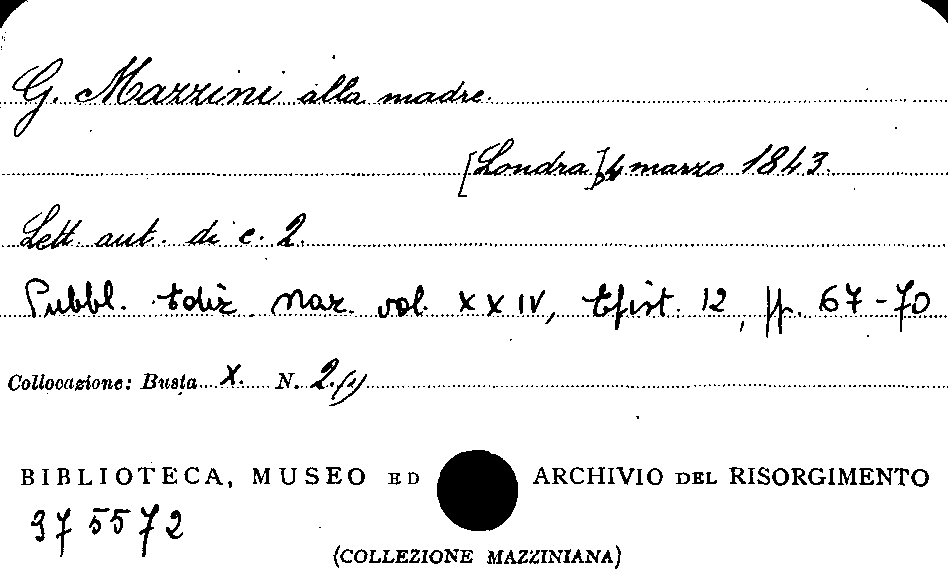 G. Mazzini alla madre.
[Londra] 4 marzo 1843.
Lett. aut. di c. 2.
Pubbl. Ediz. Naz. vol. XXIV, Epist. 12, pp. 67-70
Collocazione: Busta X. N. 2.(1)
BIBLIOTECA, MUSEO ED ARCHIVIO DEL RISORGIMENTO
975572
(COLLEZIONE MAZZINIANA)